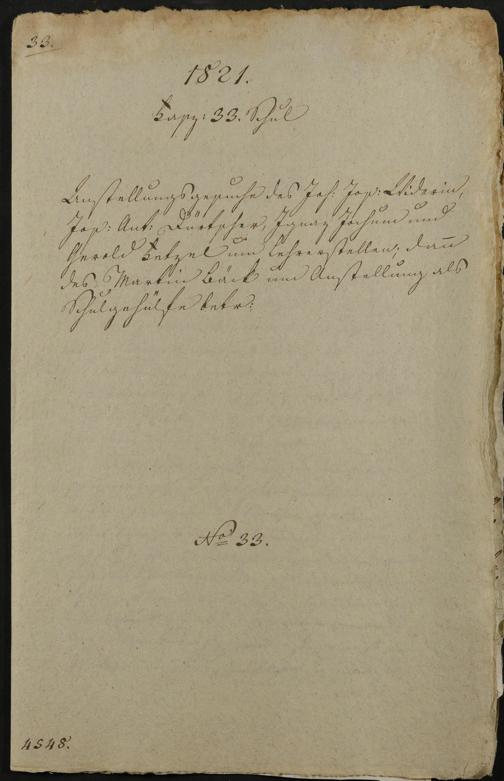 33.
1821.
Fasz: 33. Schul
Anstellungsgesuche des Joh: Jos:
Jos: Ant: Dürtscher, Ignaz Jochum und
Herold Ketzel um Lehrerstellen, dann
des Martin Bäck um Anstellung als
Schulgehülfe betr:
No 33.
4548.